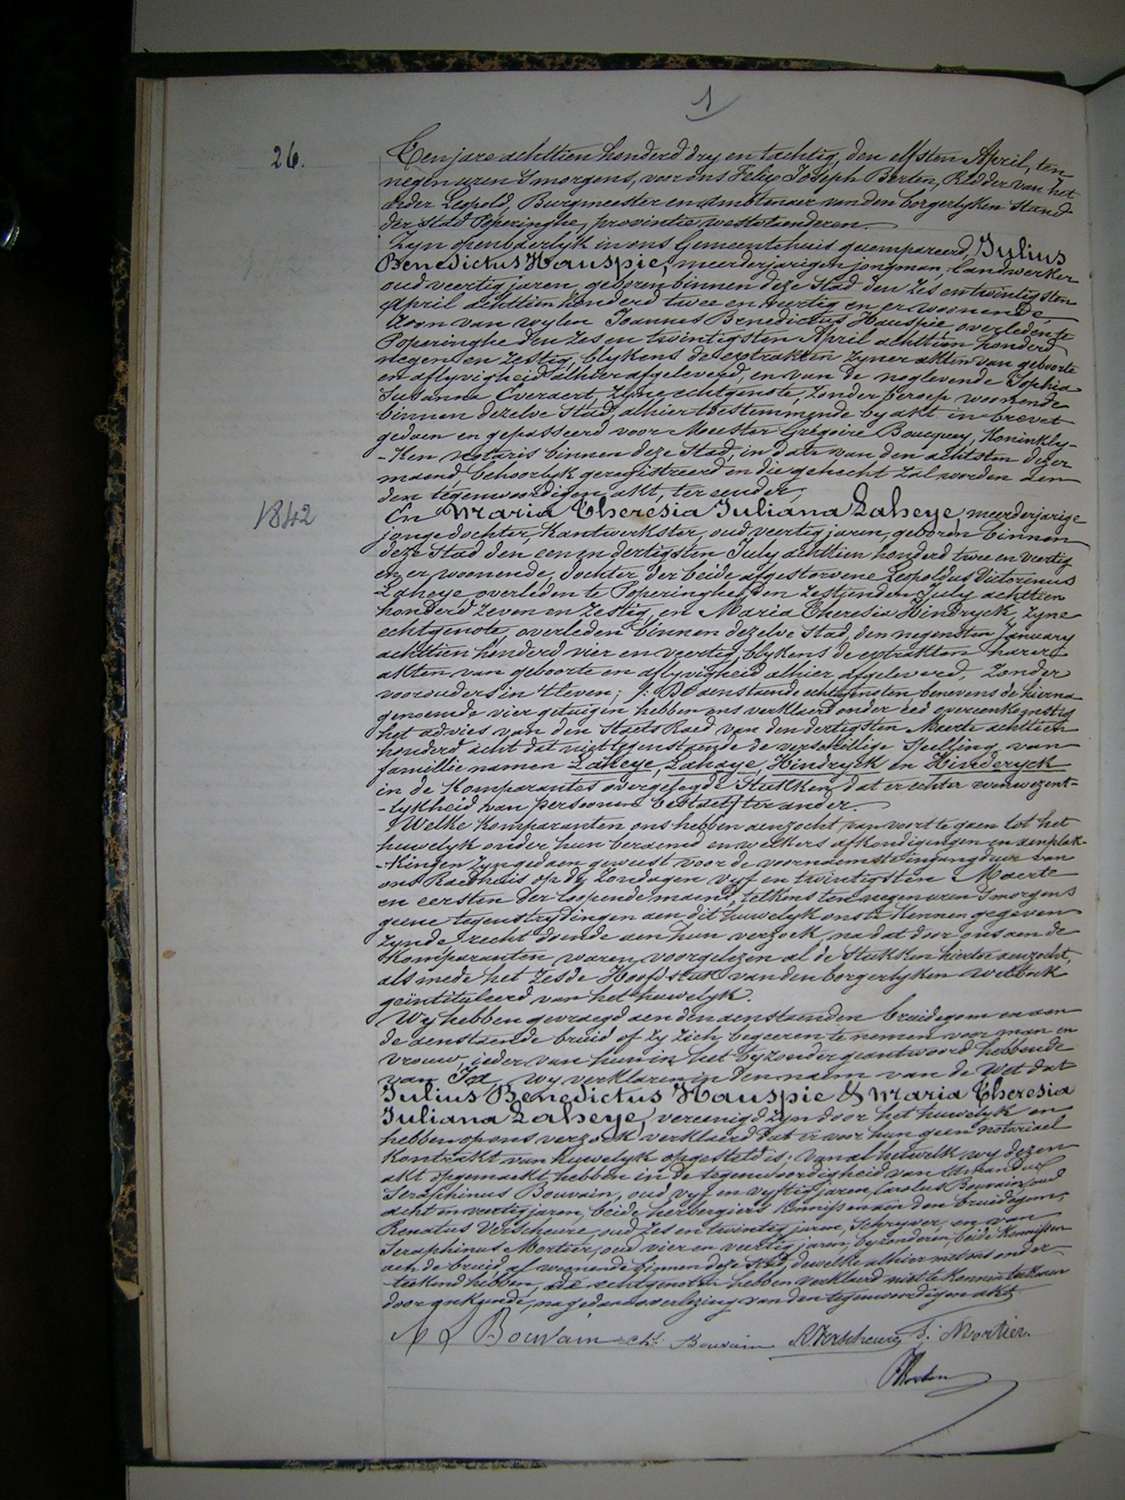 1
26.
Ten jare achttien honderd dry en tachtig, den elfsten April, ten
negen uren 's morgens, voor ons Felix Joseph Berten, Ridder van het
Order Leopold, Burgmeester en Ambtenaer van den borgerlyken Stand
der stad Poperinghe, provintie Westvlaenderen.
Zyn openbaerlyk in ons Gemeentehuis gecompareerd, Julius
Benedictus Hauspie, meerderjarigen jongman, landwerker
oud veertig jaren, geboren binnen deze Stad den zes en twintigsten
April achttien honderd twee en veertig en er woonende,
Zoon van wylen Joannes Benedictus Hauspie, overleden te
Poperinghe den zes en twintigsten April achttien honderd
negen en zestig, blykens de extrakten zyner akten van geboorte
en aflyvigheid alhier afgeleverd, en van de noglevende Sophia
Susanna Everaert, zyne echtgenote, zonder beroep woonende
binnen dezelve Stad, alhier toestemmende by akt in brevet
gedaen en gepasseerd voor Meester Grégoire Boucquey, Koninkly-
-ken notaris binnen deze Stad, in date van den achtsten dezer
maend, behoorlyk geregistreerd en die gehecht zal worden aen
den tegenwoordigen akt, ter eender,
1842
En Maria Theresia Juliana Laheye, meerderjarige
jonge dochter, Kantwerkster, oud veertig jaren, geboren binnen
deze Stad den een en dertigsten July achttien honderd twee en veertig
en er woonende, dochter der beide afgestorvene Leopoldus Victorinus
Laheye overleden te Poperinghe den zestienden July achttien
honderd zeven en zestig, en Maria Theresia Hindryck, zyne
echtgenote, overleden binnen dezelve Stad, den negensten January
achttien honderd vier en veertig, blykens de extrakten harer
akten van geboorte en aflyvigheid alhier afgeleverd, zonder
voorouders in 't leven; De aenstaende echtgenoten benevens de hierna
genoemde vier getuigen hebben ons verklaerd onder eed overeenkomstig
het advies van den Staets Raed van den dertigsten Maerte achttien
honderd acht dat niettegenstaende de verschillige spelling van
famillie namen Laheye, Lahaye, Hindryck en Hinderyck
in de Komparantes overgelegde Stukken, dat er echter eenwezent-
-lykheid van persoonen bestaet, ter ander.
Welke Komparanten ons hebben aenzocht van voort te gaen tot het
huwelyk onder hun beraemd en welkers afkondigingen en aenplak-
-kingen zyn gedaen geweest voor de voornaemste ingangdeur van
ons Raedhuis op de Zondagen vyf en twintigsten Maerte
en eersten der loopende maend, telkens ten negen uren 's morgens
geene tegenstrydingen aen dit huwelyk ons te kennen gegeven
zynde, recht doende aen hun verzoek, na dat door ons aen de
Komparanten waren voorgelezen al de Stukken hiertoe aenzocht,
als mede het zesde Hoofdstuk van den borgerlyken Wetboek
geïntituleerd van het huwelyk.
Wy hebben gevraegd aen den aenstaenden bruidegom en aen
de aenstaende bruid of zy zich begeeren te nemen voor man en
vrouw, ieder van hun in het byzonder geantwoord hebbende
van Ja, wy verklaren in den naem van de Wet dat
Julius Benedictus Hauspie & Maria Theresia
Juliana Laheye, vereenigd zyn door het huwelyk en
hebben op ons verzoek verklaerd dat er voor hun geen notariael
Kontrakt van huwelyk opgesteld is; van al hetwelk wy dezen
akt opgemaekt hebben in de tegenwoordigheid van Amandus
Seraphinus Bouvain, oud vyf en vyftig jaren, Carolus Bouvain, oud
acht en veertig jaren, beide herbergiers kennissen aen den bruidegom,
Renatus Verscheure, oud zes en twintig jaren, Schryver, en van
Seraphinus Mortier, oud vier en veertig jaren, byzonderen, beide kennissen
aen de bruid, al woonende binnen deze Stad, dewelke alhier met ons onder-
-teekend hebben, de echtgenoten hebben verklaerd niet te kunnen teekenen
door onkunde, na gedane overlezing van den tegenwoordigen akt.
Bouvain ch. Bouvain R Verscheure S. Mortier
Berten